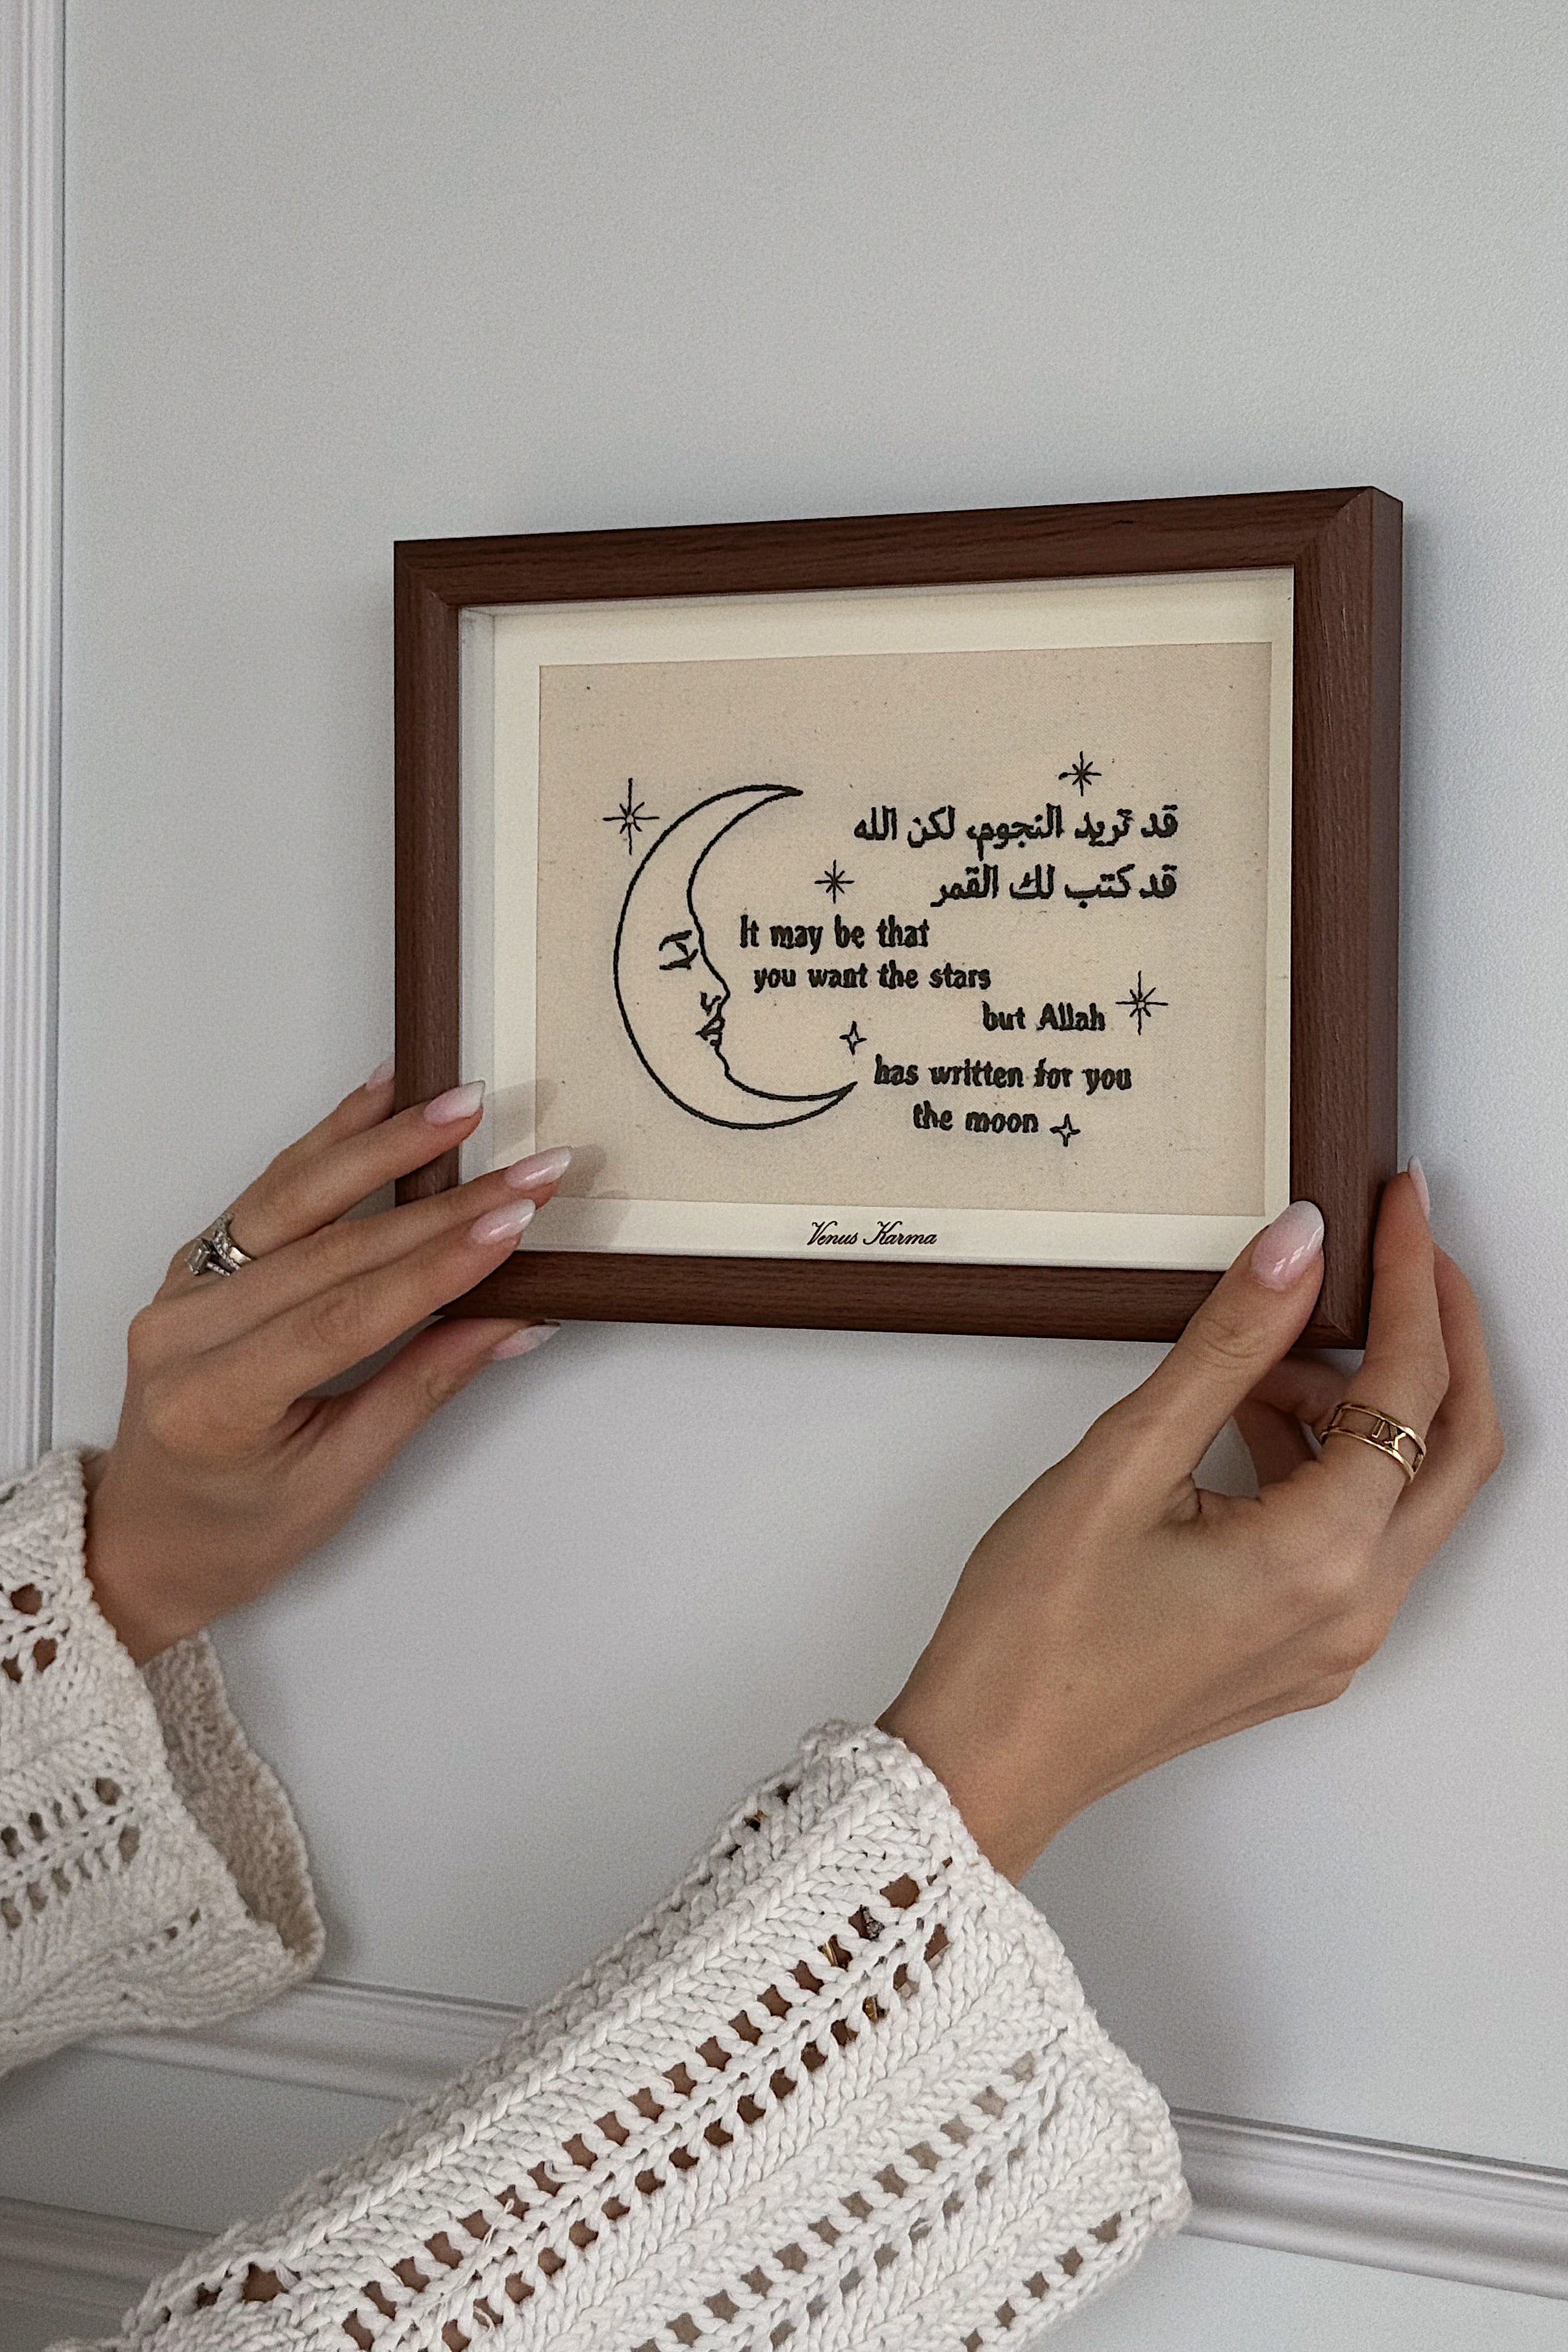 قد تريد النجوم، لكن الله
قد كتب لك القمر
It may be that
you want the stars
but Allah
has written for you
the moon
Venus Karma